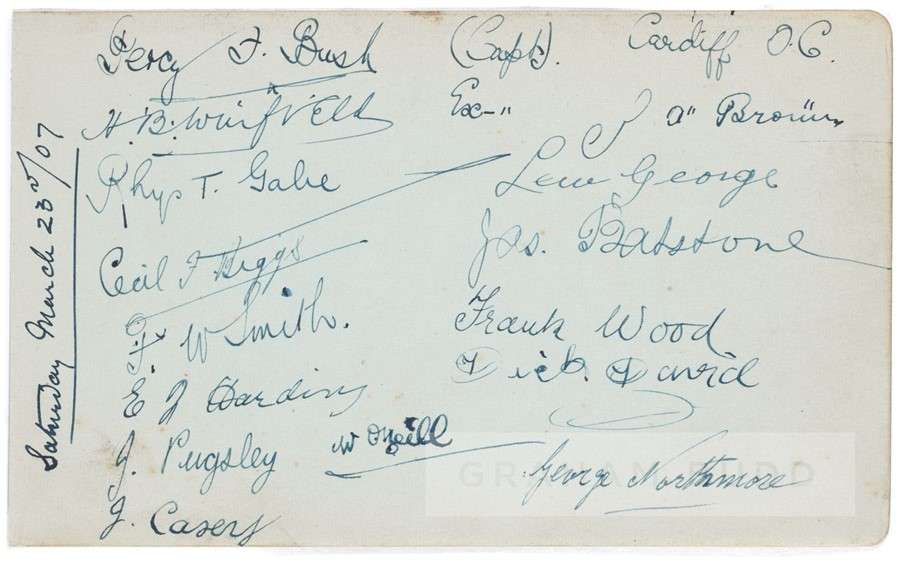 Percy F. Bush (Capt). Cardiff O.C.
H. B. Winfield Ex-"
J a" Brown
Rhys T. Gabe
Lew George
Cecil F Biggs
Jas. Batstone
F W Smith.
Frank Wood
E J Harding
Dick. David
J. Pugsley
W O'Neill
George Northmore
J. Casey
Saturday March 23rd/07